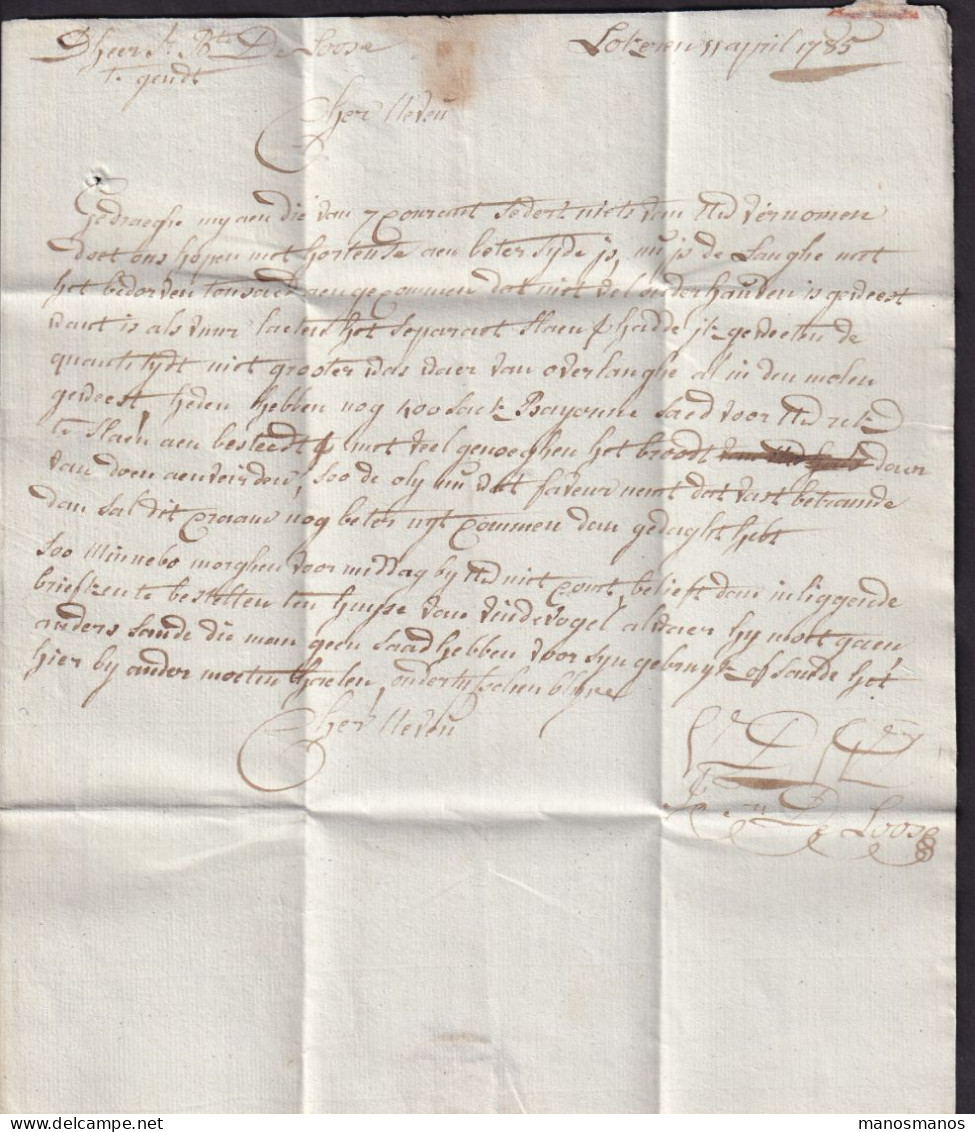 Dheer J. Bte De Loose Lokeren 11 april 1785
te gendt
Cher Neveu
Gedraeghe my aen die van 7 courant sedert niets van Ued vernomen
doet ons hopen met hortense aen beter syde is, nu is de Langhe met
het bedorven tonsaet aengecommen dat niet vel onder handen is geweest
want is als vuur laeten het separaet slaen hadde ik geweeten de
quantitydt niet grooter was waer van overlanghe al in den molen
geweest, heden hebben nog 100 sack Bayonne saed voor Ued
te slaen aen besteedt met veel genoeghen het broodt daer
van doen aenveirden, soo de oly nu wat faveur nemt dat vast betrauwde
dan sal dit craam nog beter uyt commen dan gedaght hebt
soo Minnebo morghen voor middag by Ued niet comt, belieft dan inliggende
briefken te bestellen ten huyse van vindevogel alwaer hy moet gaen
anders saude die man geen saad hebben voor syn gebruyk of saude het
hier by ander moeten haelen, ondertusschen blyve
Cher Neveu
De Loose
manosmanos